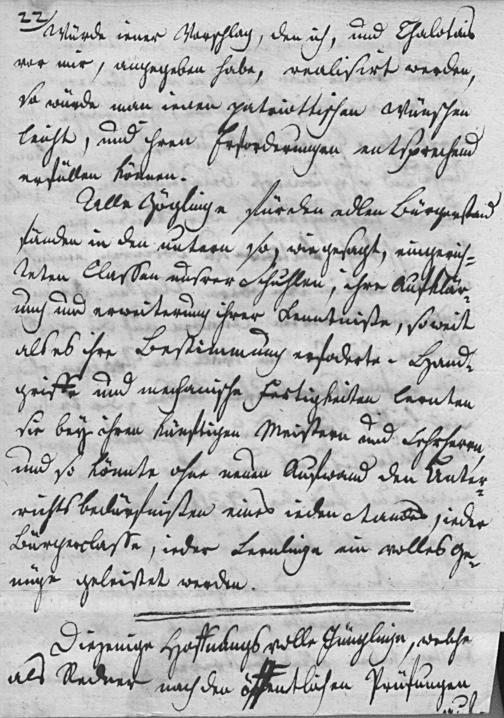 22
Würde iener Vorschlag, den ich, und Chalotais
vor mir, angegeben habe, realisirt werden,
so würde man ienen patriottischen Wünschen
leicht, und ihren Erforderungen entsprechend
erfüllen können.
Alle Zöglinge für den edlen Bürgerstand
fänden in den untern so, wie gesagt, eingerich-
teten Classen unsrer Schuhlen, ihre Aufklär-
ung und erweiterung ihrer Kenntniße, so weit
als es ihre Bestimmung erfoderte. Hand-
griffe und mechanische Fertigkeiten lernten
sie bey ihren künftigen Meistern und Lehrherrn,
und so könnte ohne neuen Aufwand den Unter-
richtsbedürfnißen eines ieden Standes, ieder
Bürgerclasse, ieder Lernlinge ein volles Ge-
nüge geleistet werden.
Diejenige Hoffnungsvolle Jünglinge, welche
als Redner nach den öffentlichen Prüfungen